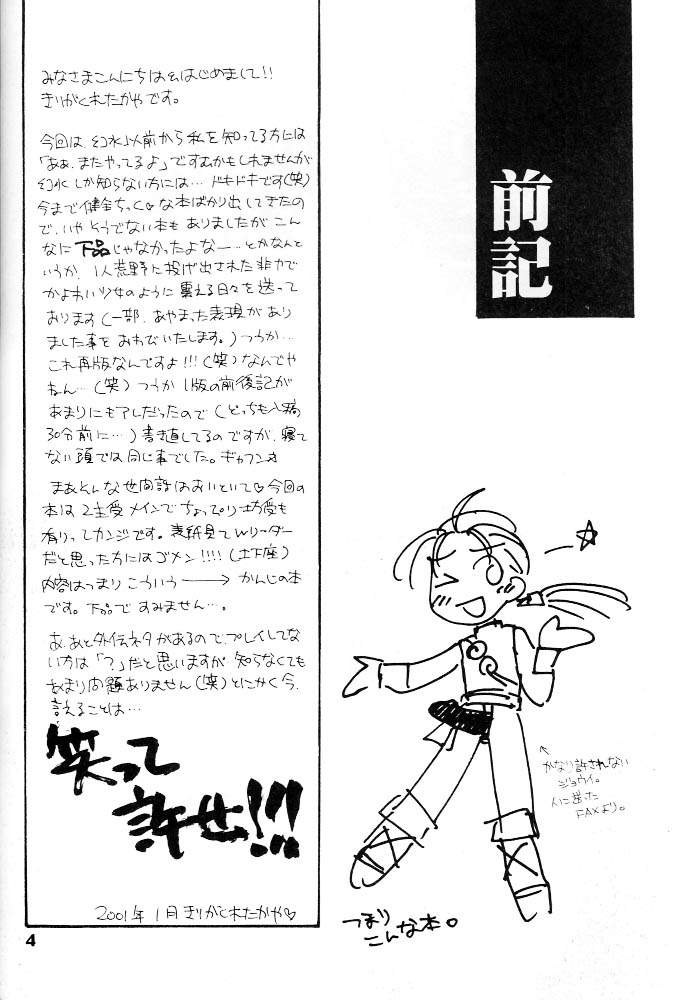 前記
みなさまこんにちは&はじめまして!!
きりがくれたかやです。
今回は、幻水以前から私を知ってる方には
「あぁ、またやってるよ」ですむかもしれませんが
幻水しか知らない方には…ドキドキです(笑)
今まで健全ちっく♡な本ばかり出してきたの
で、いやそうでない本もありましたがこん
なに下品じゃなかったよなー…とかなんと
いうか、1人荒野に投げ出された非力で
かよわい少女のように震える日々を送って
おります(一部、あやまった表現があり
ました事をおわびいたします。)つうか…
これ再版なんですよ!!!(笑)なんでや
ねん…(笑)つうか1版の前後記が
あまりにもアレだったので(どっちも入稿
30分前に…)書き直してるのですが、寝て
ない頭では同じ事でした。ギャフン
まあそんな世間話はおいといて♡今回の
本は2主受メインでちょっぴり坊受も
有りってカンジです。表紙見てWリーダー
だと思った方にはゴメン!!!!(土下座)
内容はつまりこういう→かんじの本
です。下品ですみません…。
あ、あと外伝ネタがあるので、プレイしてな
い方は「?」だと思いますが知らなくても
あまり問題ありません(笑)とにかく今、
言えることは…
笑って
許せ!!!
2001年1月きりがくれたかや♡
↖
かなり許されない
ジョウイ。
人に送った
FAXより。
つまり
こんな本。
4